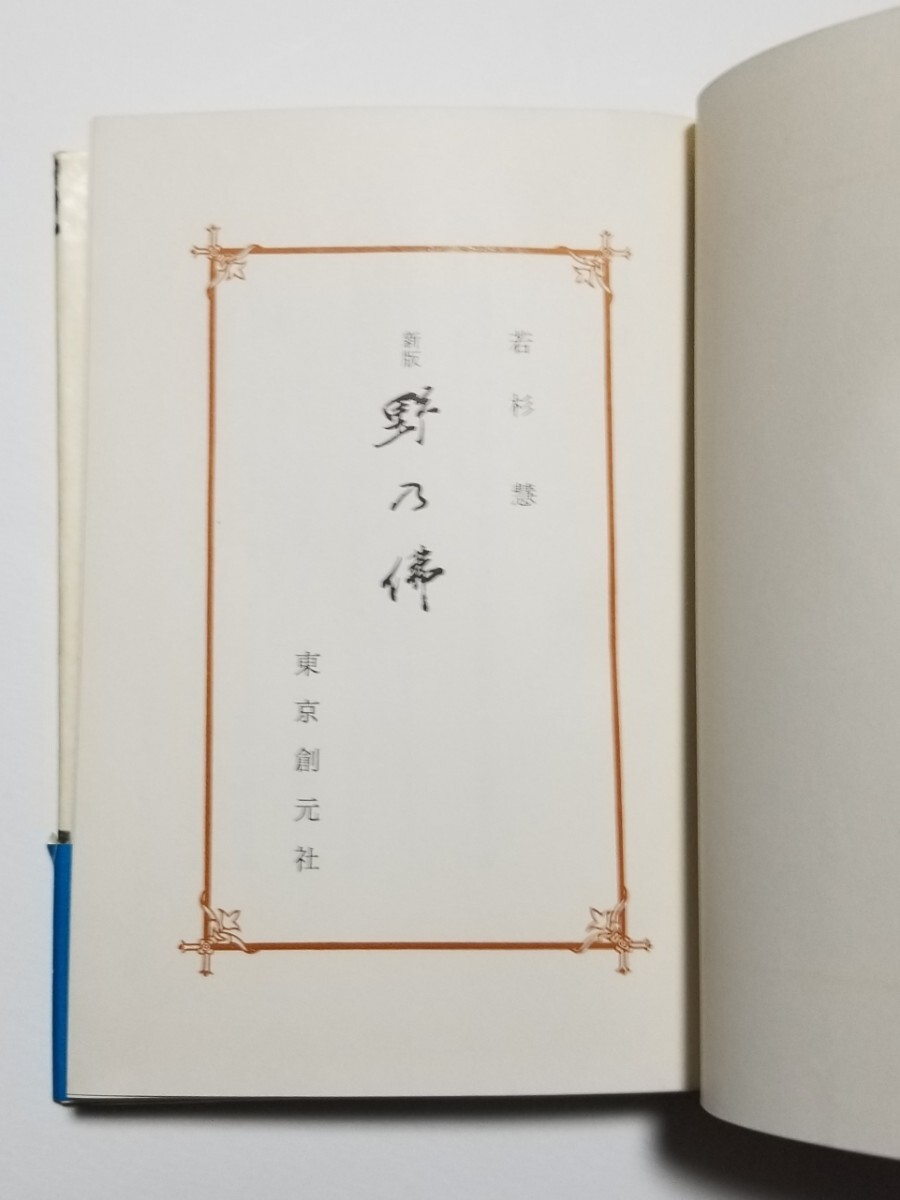 若杉慧
新版
野乃佛
東京創元社